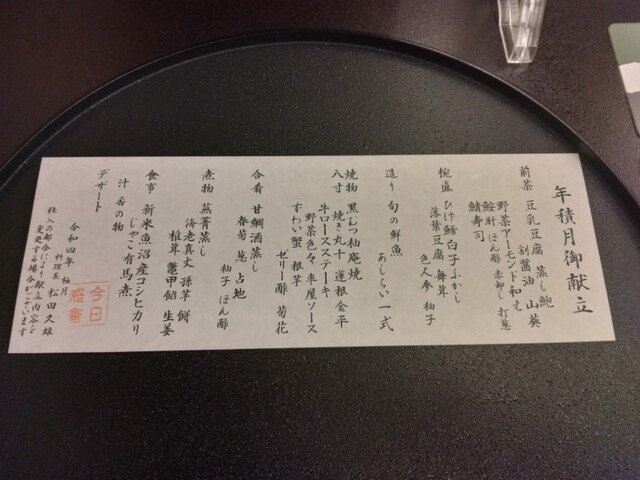 年積月御献立
前菜 豆乳豆腐 蒸し鮑
割醤油 山葵
野菜アーモンド和え
鮟肝 ぽん酢 赤卸し 打葱
鯖寿司
椀盛 ひげ鱈白子ふかし
落葉豆腐 舞茸
色人参 柚子
造り 旬の鮮魚
あしらい一式
焼物 黒むつ柚庵焼
八寸 焼き丸十 蓮根金平
牛ロースステーキ
野菜色々 車屋ソース
ずわい蟹 根芋
ゼリー酢 菊花
合肴 甘鯛酒蒸し
春菊 葱 占地
柚子 ぽん酢
煮物 蕪菁蒸し
海老真丈 孫芋 餅
椎茸 鼈甲餡 生姜
食事 新米魚沼産コシヒカリ
じゃこ有馬煮
汁 香の物
デザート
令和四年 極月
料理長 松田久雄
仕入の都合により献立内容を
変更する場合がございます
今日
感章